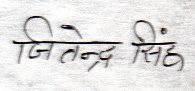 जितेन्द्र सिंह